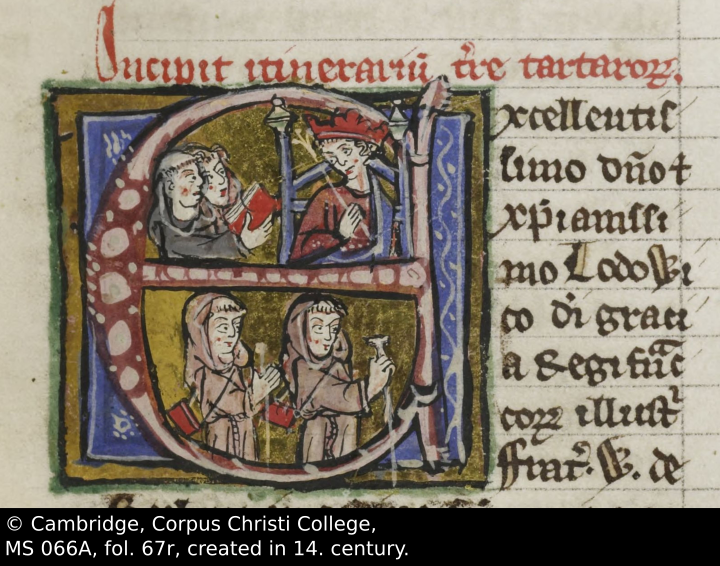 Incipit itinerariū t̄re tartaroꝝ.
Excellentis
simo dn̄o ⁊
xp̄ianissi
mo Lodowi
co di grati
a Regi frāc
coꝝ illustr̄
ffrat̄. W. de
© Cambridge, Corpus Christi College,
MS 066A, fol. 67r, created in 14. century.